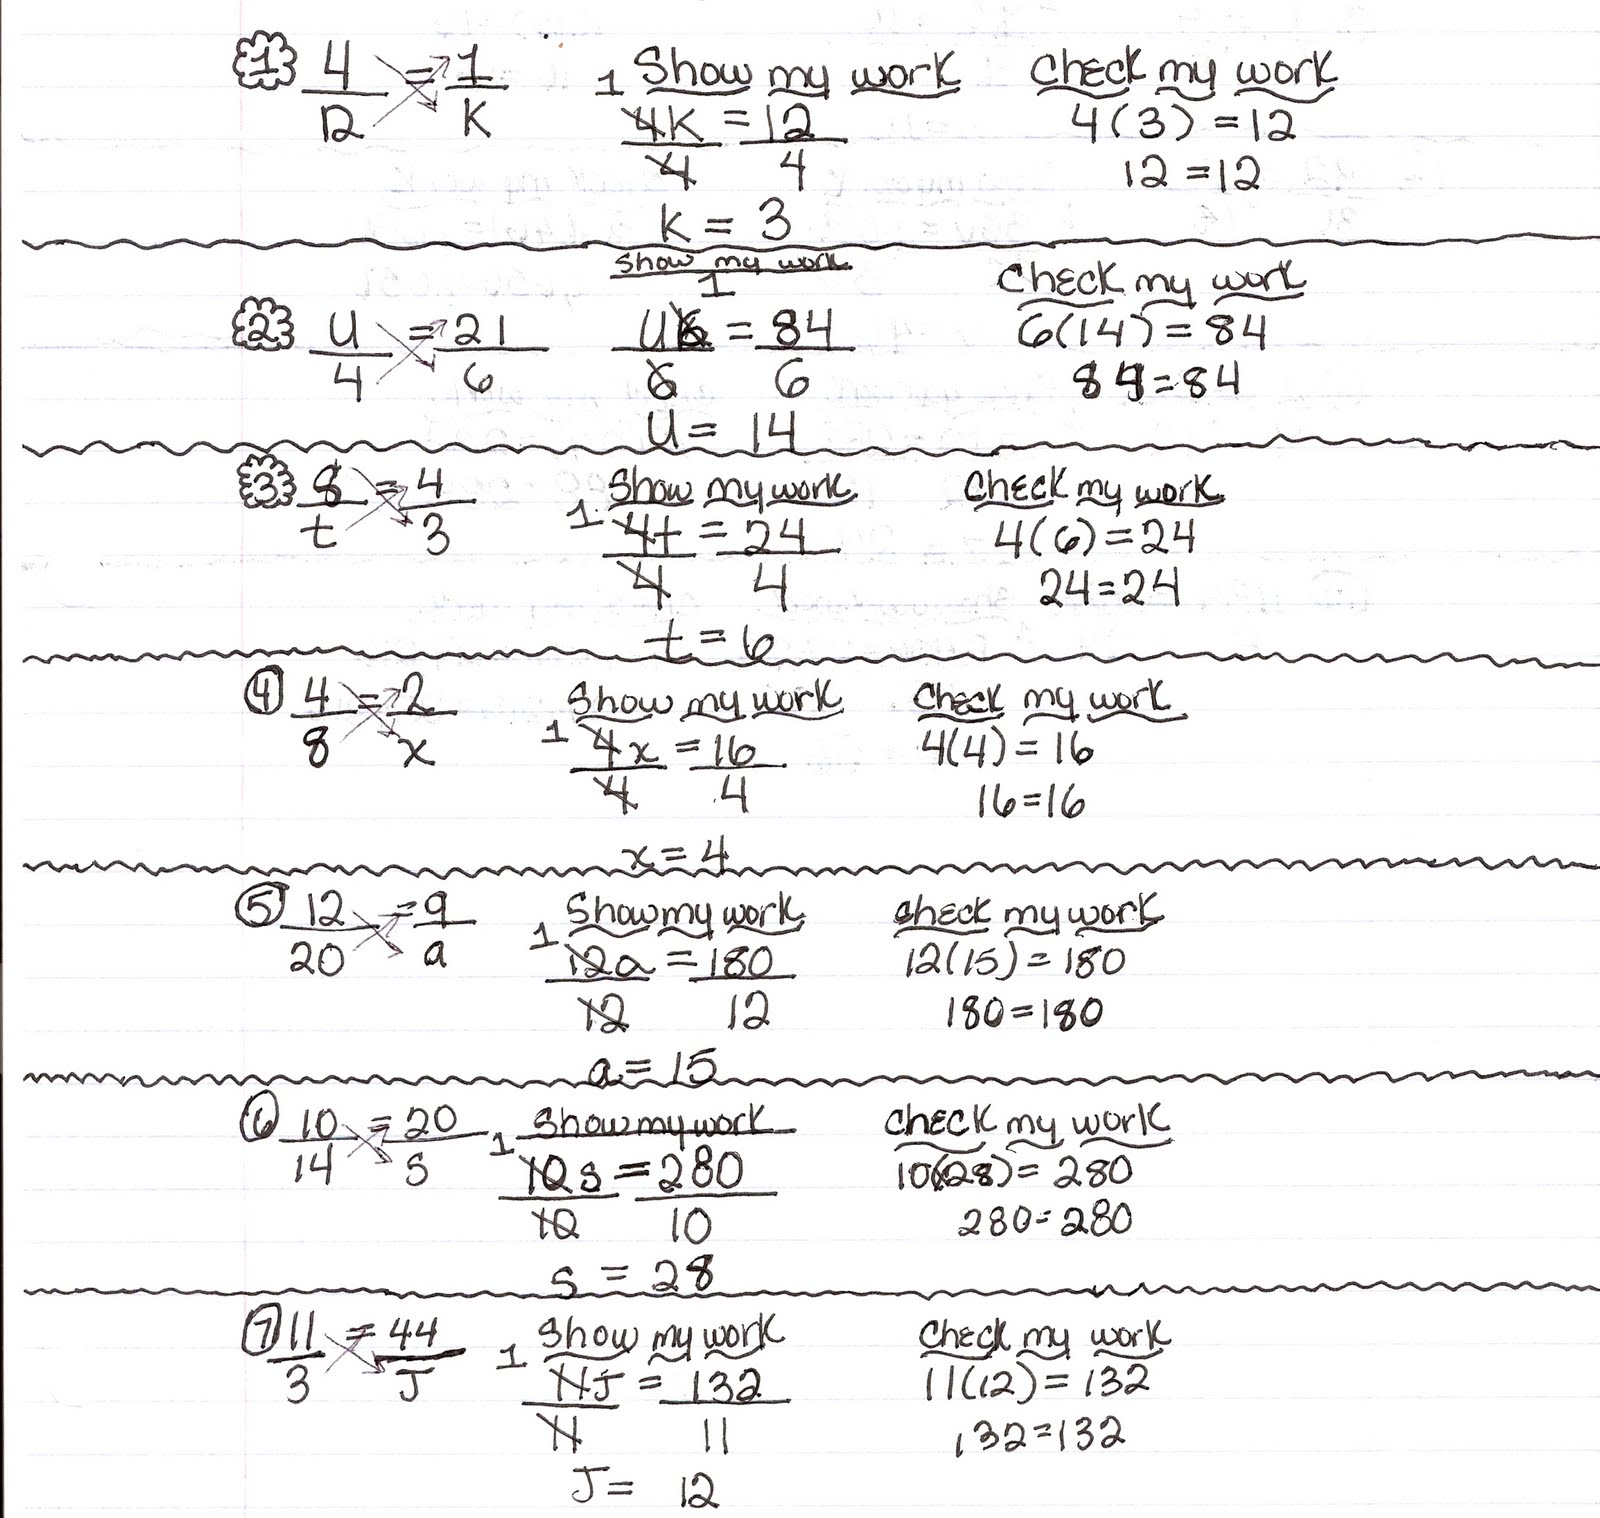 1 4/12 = 1/K
Show my work
1 4K/4 = 12/4
K = 3
Check my work
4(3) = 12
12 = 12
2 U/4 = 21/6
Show my work
1
U6/6 = 84/6
U = 14
Check my work
6(14) = 84
84 = 84
3 8/t = 4/3
Show my work
1 4t/4 = 24/4
t = 6
Check my work
4(6) = 24
24 = 24
4 4/8 = 2/x
Show my work
1 4x/4 = 16/4
x = 4
Check my work
4(4) = 16
16 = 16
5 12/20 = 9/a
Show my work
1 12a/12 = 180/12
a = 15
Check my work
12(15) = 180
180 = 180
6 10/14 = 20/s
Show my work
1 10s/10 = 280/10
s = 28
Check my work
10(28) = 280
280 = 280
7 11/3 = 44/J
Show my work
1 11J/11 = 132/11
J = 12
Check my work
11(12) = 132
132 = 132